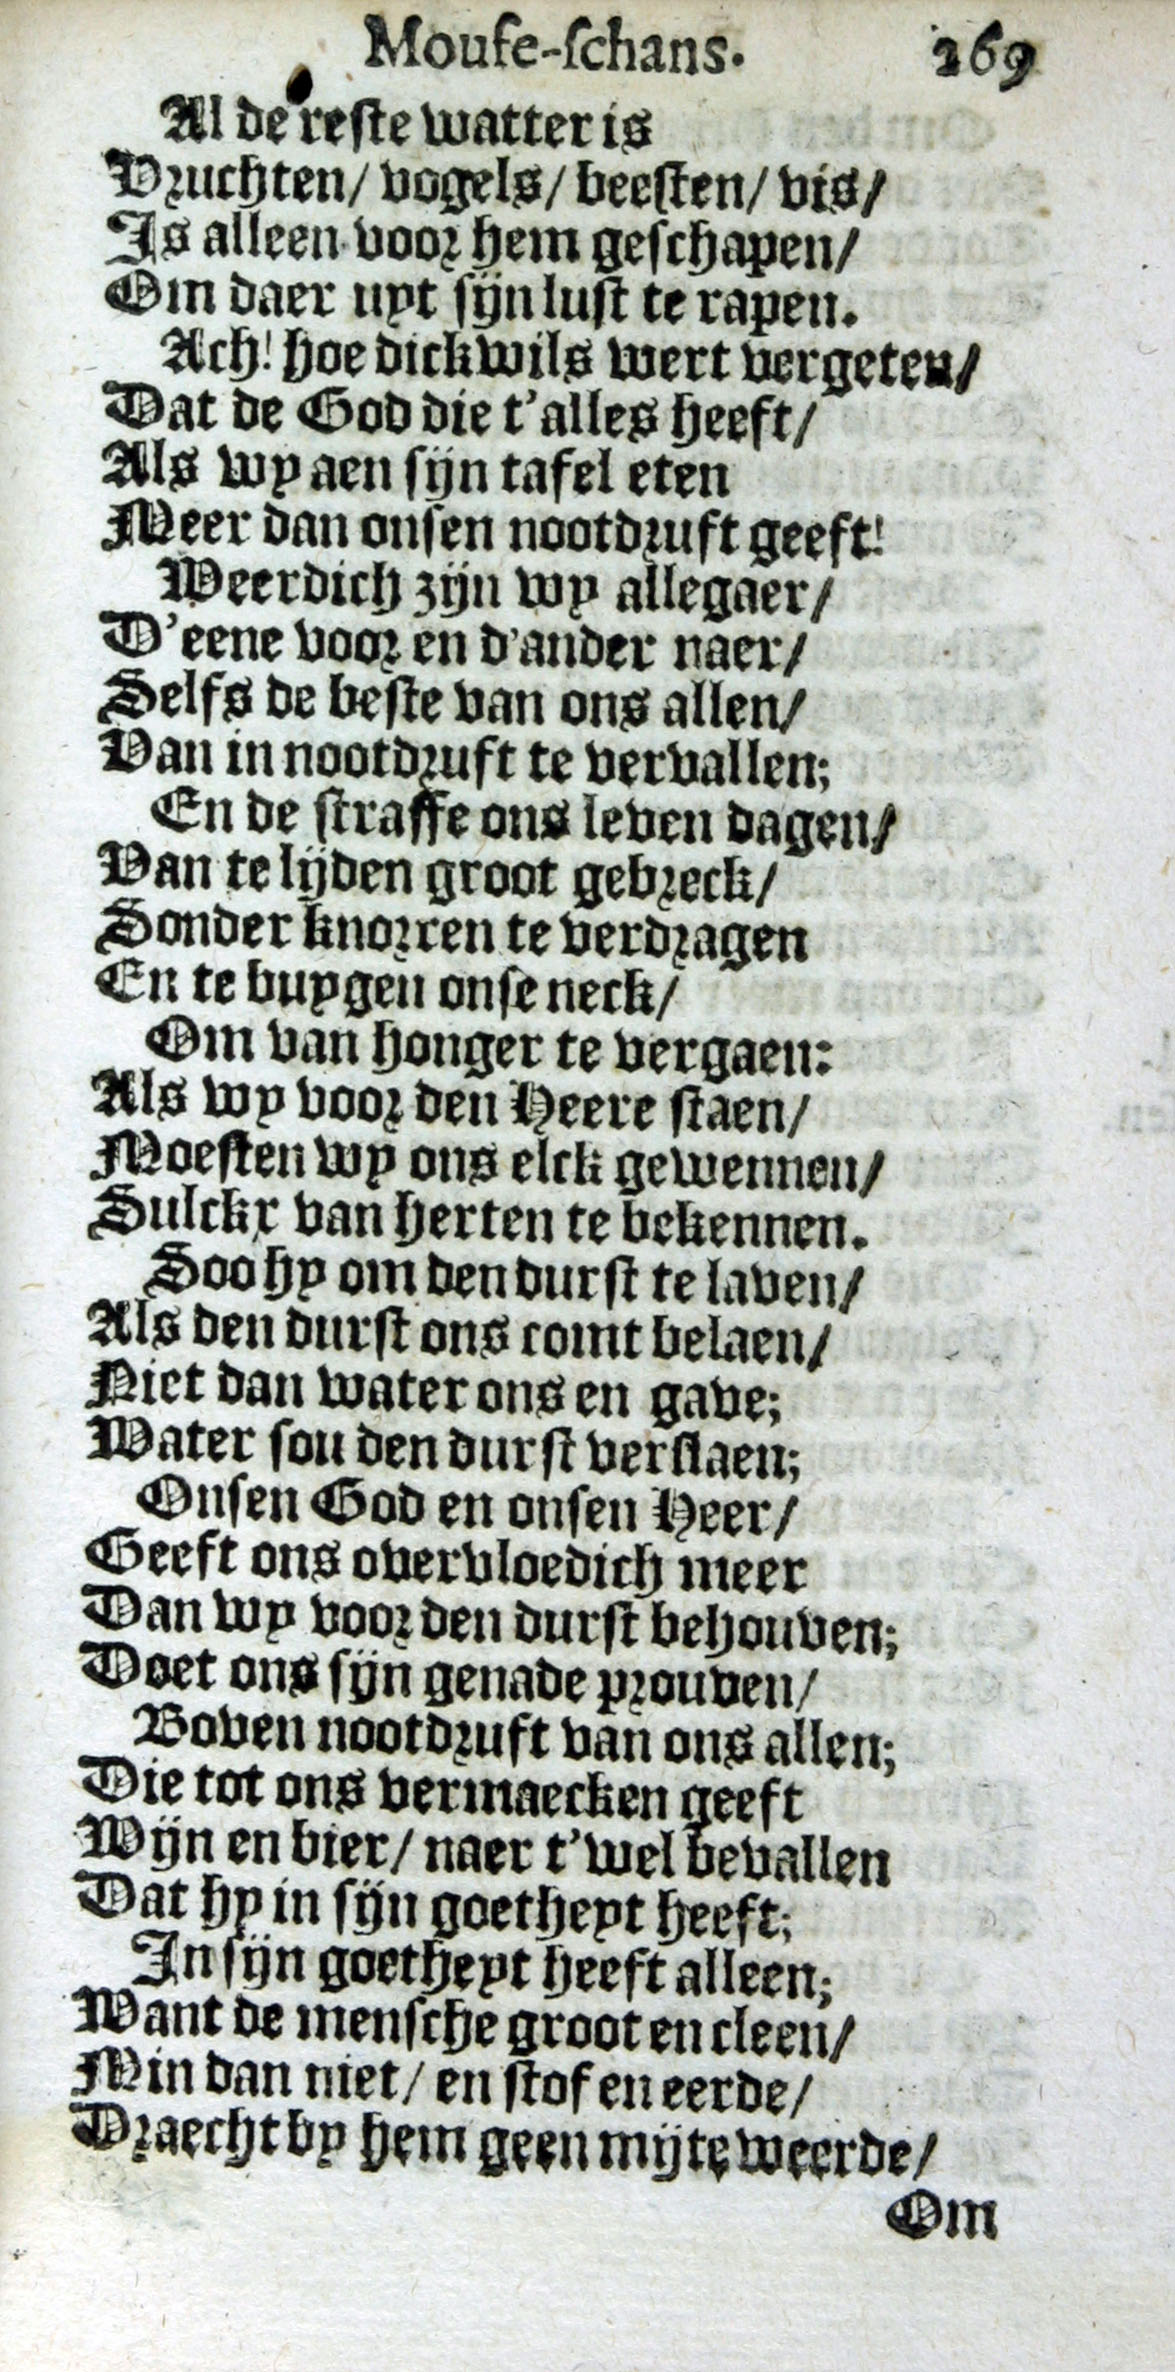 Mouse-schans. 269
Al de reste watter is
Vruchten/ vogels/ beesten/ vis/
Is alleen voor hem geschapen/
Om daer uyt sijn lust te rapen.
Ach! hoe dickwils wert vergeten/
Dat de God die t'alles heeft/
Als wy aen sijn tafel eten
Meer dan onsen nootdruft geeft!
Weerdich zijn wy allegaer/
D'eene voor en d'ander naer/
Selfs de beste van ons allen/
Van in nootdruft te vervallen;
En de straffe ons leven dagen/
Van te lijden groot gebreck/
Sonder knorren te verdragen
En te buygen onse neck/
Om van honger te vergaen:
Als wy voor den Heere staen/
Moesten wy ons elck gewennen/
Sulckx van herten te bekennen.
Soo hy om den durst te laven/
Als den durst ons comt belaen/
Niet dan water ons en gave;
Water sou den durst verslaen;
Onsen God en onsen Heer/
Geeft ons overvloedich meer
Dan wy voor den durst behouven;
Doet ons sijn genade prouven/
Boven nootdruft van ons allen;
Die tot ons vermaecken geeft
Wijn en bier/ naer t'wel bevallen
Dat hy in sijn goetheyt heeft;
In sijn goetheyt heeft alleen;
Want de mensche groot en cleen/
Min dan niet/ en stof en eerde/
Draecht by hem geen mijte weerde/
Om